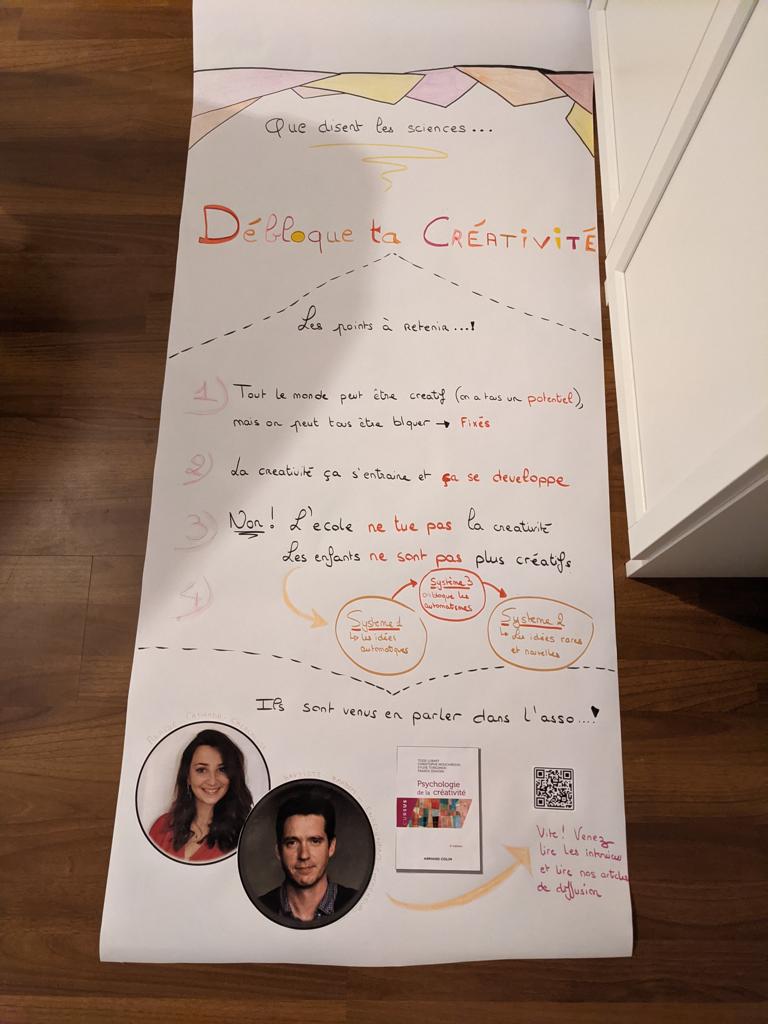 Que disent les sciences...
Débloque ta CRÉATIVITÉ
Les points à retenir...!
1) Tout le monde peut être creatif (on a tous un potentiel),
mais on peut tous être blquer → Fixés
2) La creativité ça s'entraine et ça se developpe
3) Non! L'ecole ne tue pas la creativité
Les enfants ne sont pas plus créatifs
4)
Système 1
↳ les idées
automatiques
Système 3
on bloque les
automatismes
Système 2
↳ Les idées rares
et nouvelles
Ils sont venus en parler dans l'asso....!
TODD LUBART
CHRISTOPHE MOUCHIROUD
SYLVIE TORDJMAN
FRANCK ZENASNI
Psychologie
de la créativité
CURSUS
2e édition
ARMAND COLIN
Vite! Venez
lire les
et lire nos
de diffusion